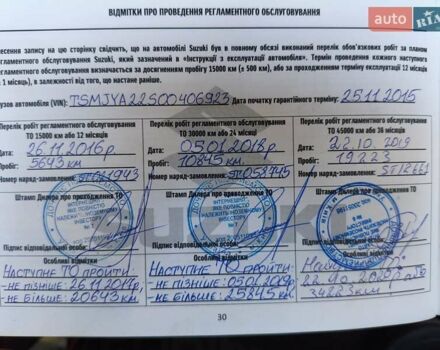 ВІДМІТКИ ПРО ПРОВЕДЕННЯ РЕГЛАМЕНТНОГО ОБСЛУГОВУВАННЯ
auto RIA
несення запису на цю сторінку свідчить, що на автомобілі Suzuki був в повному обсязі виконаний перелік обов'язкових робіт за планом
регламентного обслуговування Suzuki, який зазначений в «Інструкції з експлуатації автомобіля». Термін проведення кожного наступного
регламентного обслуговування визначається за досягненням пробігу 15000 км (± 500 км), або за проходженням терміну експлуатації 12 місяців
1 місяць), в залежності від того, що настане раніше.
узов автомобіля (VIN): TSMJYA22S00406923 Дата початку гарантійного терміну: 25.11.2015
Перелік робіт регламентного обслуговування Перелік робіт регламентного обслуговування Перелік робіт регламентного обслуговування
ТО 15000 км або 12 місяців ТО 30000 км або 24 місяці ТО 45000 км або 36 місяців
Дата: 26.11.2016р. Дата: 05.01.2018р. Дата: 22.10.2019
Пробіг: 5643 км. Пробіг: 10845 км. Пробіг: 19223
Номер наряд-замовлення: Номер наряд-замовлення: ST058945 Номер наряд-замовлення:
Штамп Дилера про проходження ТО Штамп Дилера про проходження ТО Штамп Дилера про проходження ТО
Підпис відповідальної особи: Підпис відповідальної особи: Підпис відповідальної особи:
Особливі відмітки Особливі відмітки Особливі відмітки
НАСТУПНЕ ТО ПРОЙТИ НАСТУПНЕ ТО ПРОЙТИ
-НЕ ПІЗНІШЕ: 26.11.2017р. -НЕ ПІЗНІШЕ: 05.01.2019р. 22.10.2020р
-НЕ БІЛЬШЕ: 20643 км. -НЕ БІЛЬШЕ: 25845 км. 34223 км
30